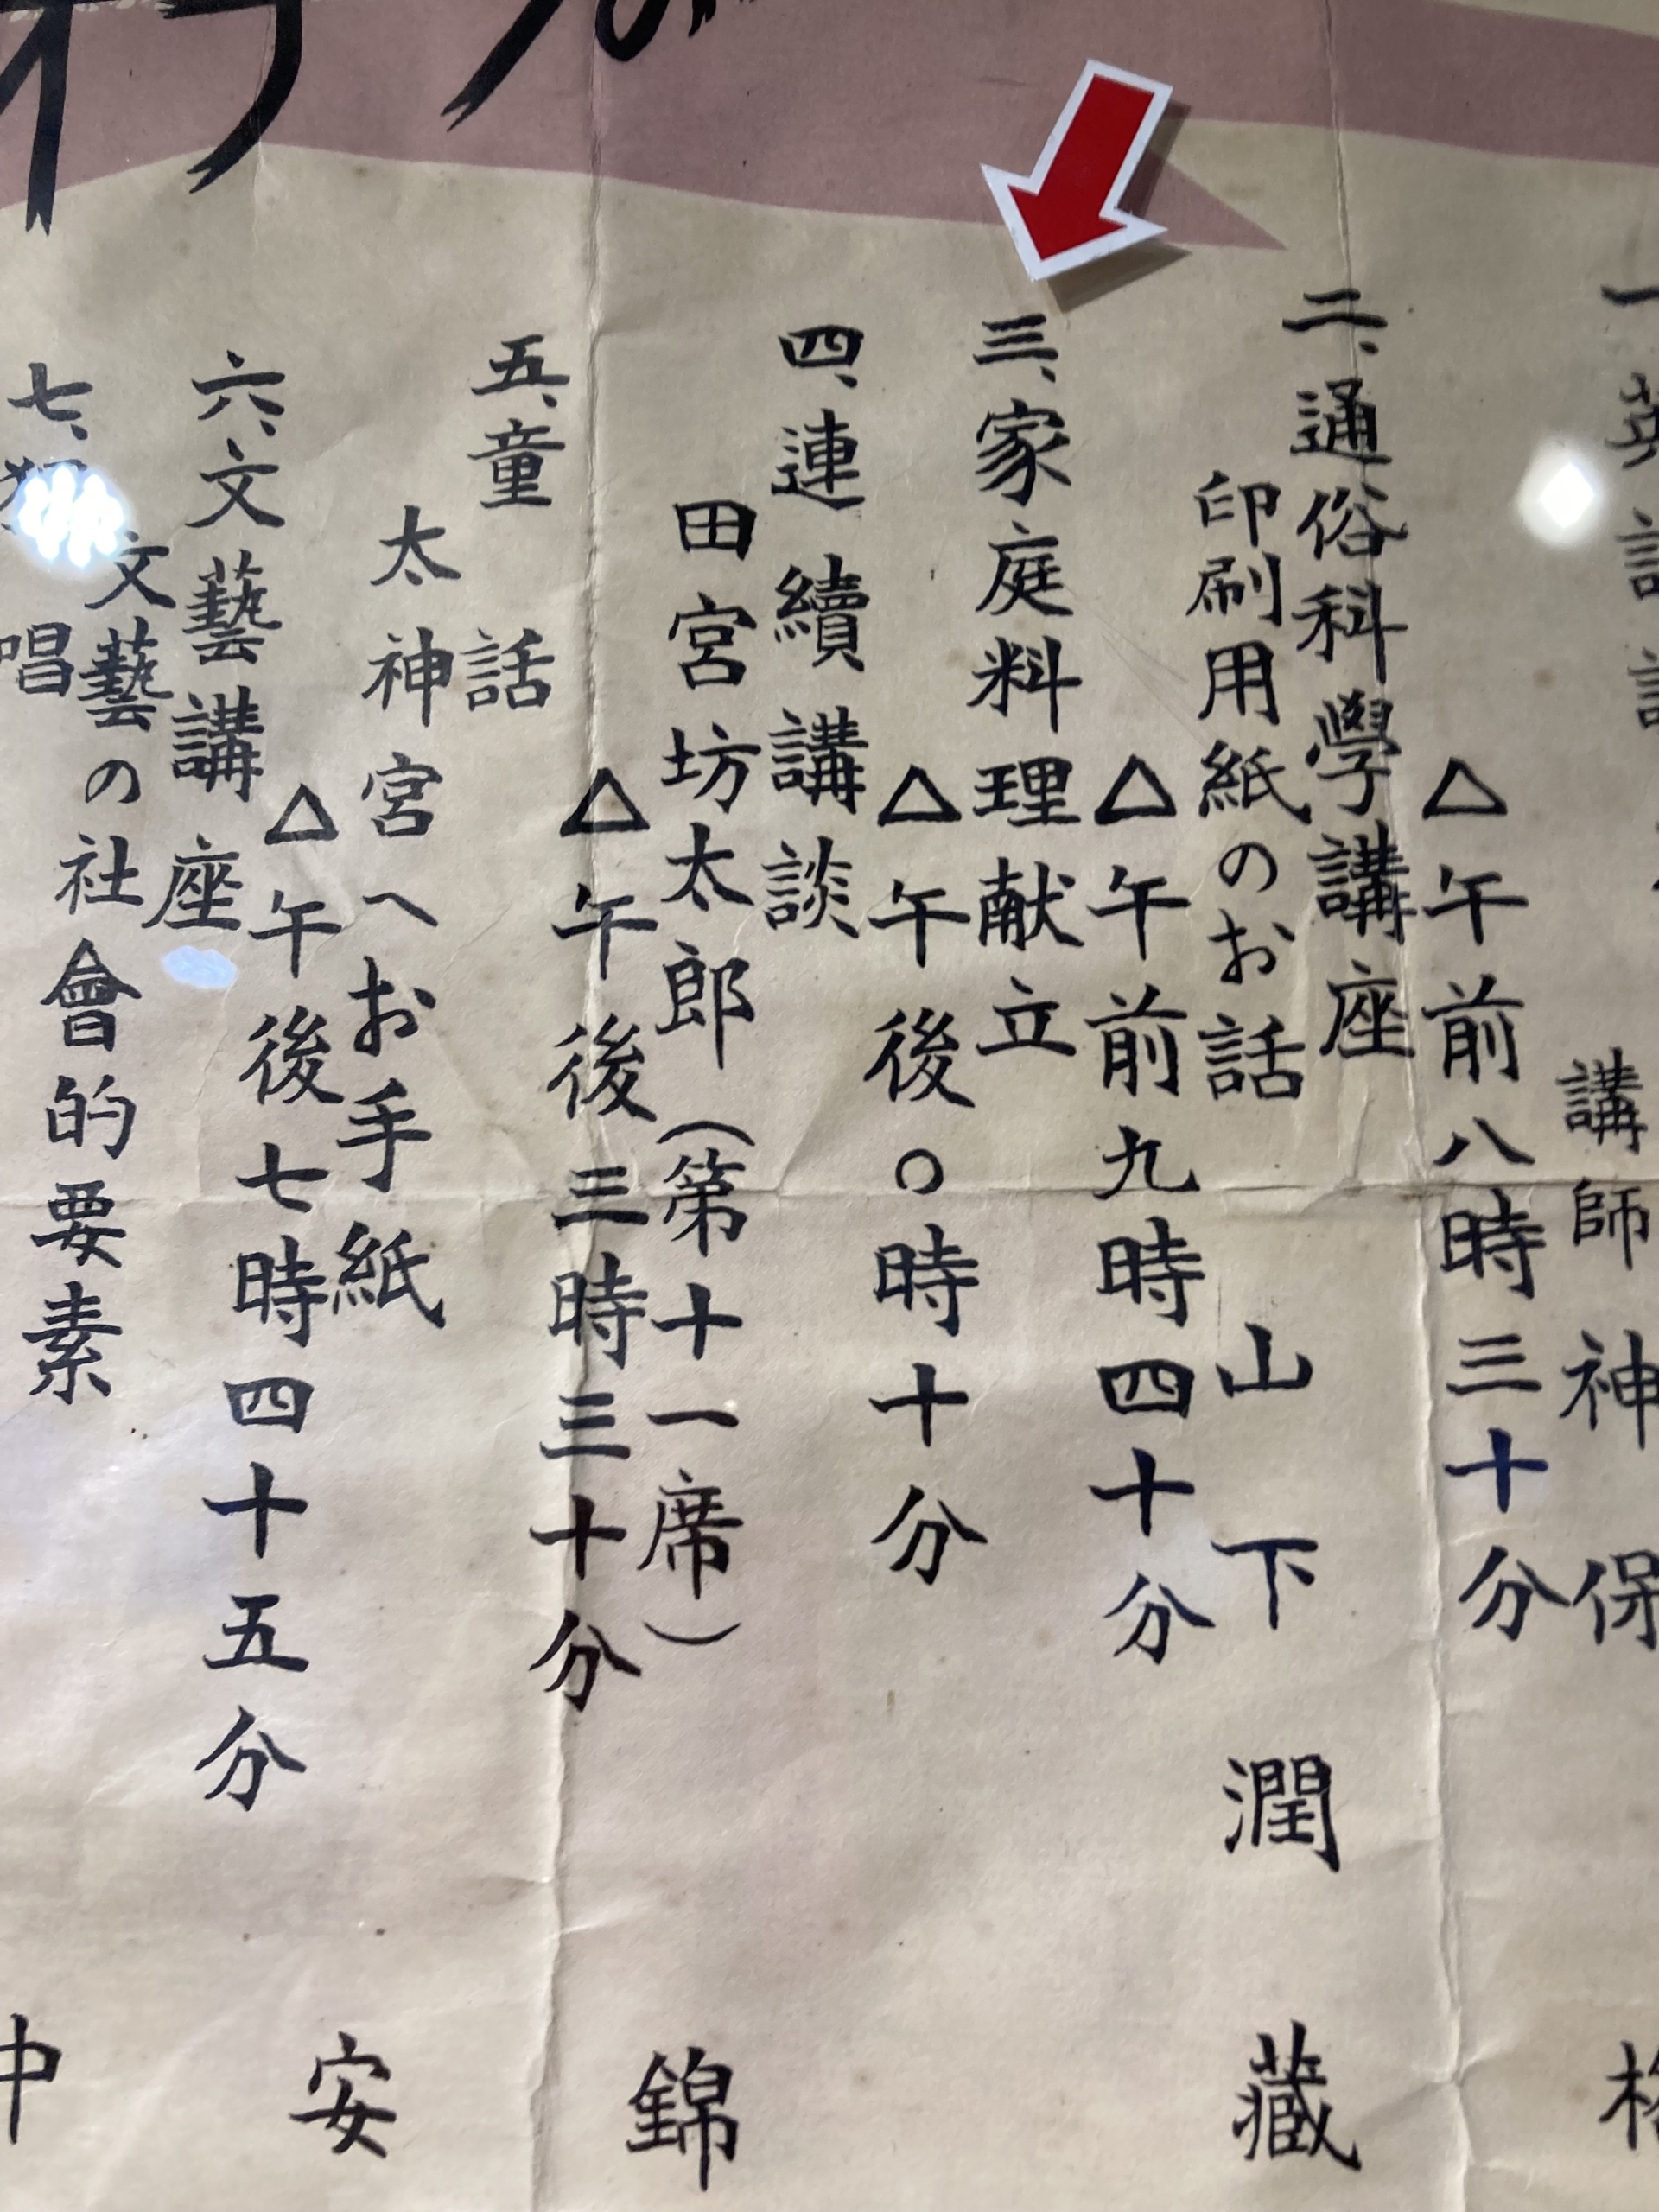 一 英語
講師 神保 格
△午前八時三十分
二、通俗科學講座
印刷用紙のお話 山下潤藏
△午前九時四十分
三、家庭料理献立
△午後〇時十分
四、連續講談
田宮坊太郎(第十一席) 錦
△午後三時三十分
五、童話
太神宮へお手紙 安
△午後七時四十五分
六、文藝講座
文藝の社會的要素 中
七、 唱